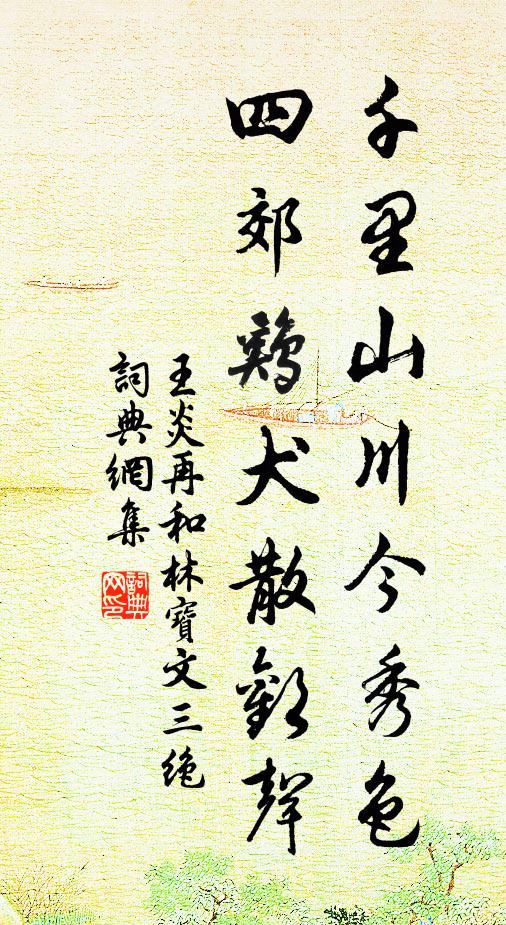 千里山川今秀色
四郊鷄犬散歡聲
王炎再和林寶文三絶
詞典網集
詞典网印